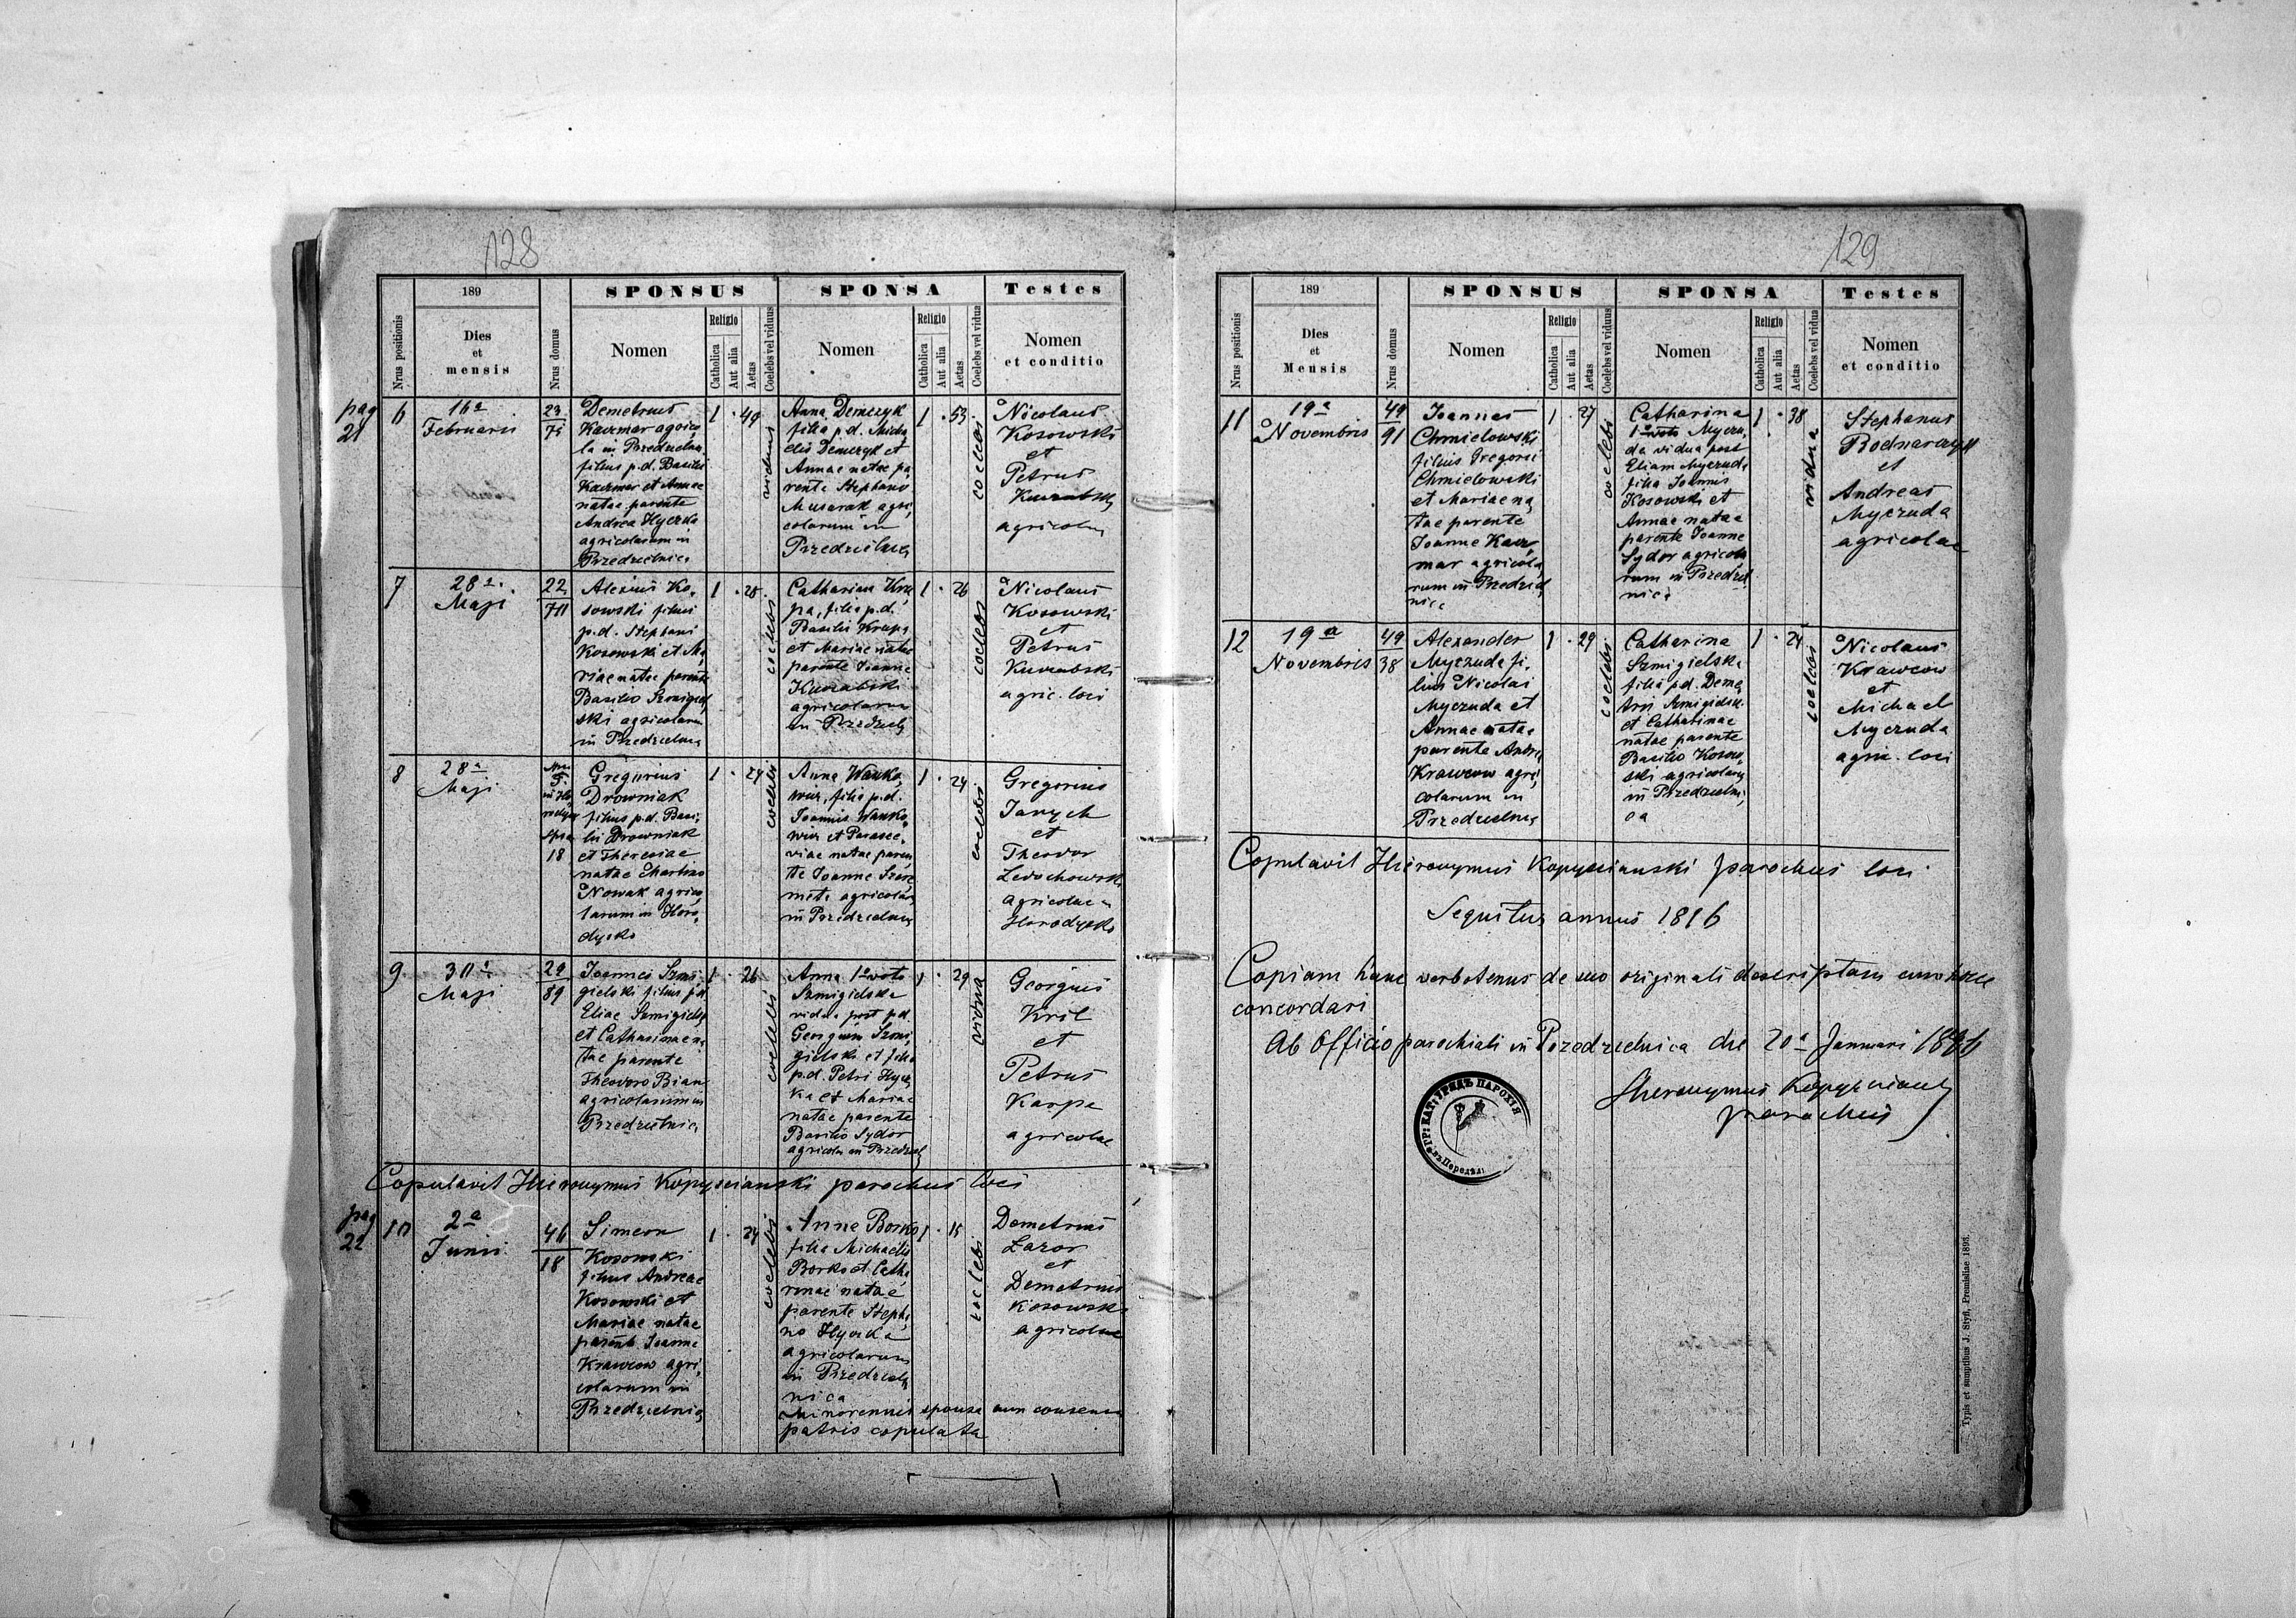 128
189
SPONSUS
SPONSA
Testes
Nrus positionis
Dies
et
mensis
Nrus domus
Nomen
Religio
Catholica
Aut alia
Aetas
Coelebs vel viduus
Nomen
Religio
Catholica
Aut alia
Aetas
Coelebs vel vidua
Nomen
et conditio
pag
21
6
16a
Februarii
23
75
Demetrius
Kaczmar agrico,
la in Przedzelni,
filius p.d. Basilii
Kaczmar et Annae
natae parente
Andrea Hyczka
agricolarum in
Przedzielnica
1 · 49
viduus
Anna Demczyk
filia p.d. Micha
elis Demczyk et
Annae natae pa,
rente Stephano
Musarak agri,
colarum in
Przedzielnica
1 · 53
coelebs
Nicolaus
Kosowski
et
Petrus
agricolae
7
28a
Maji
22
70
Alexius Ko,
sowski filius
p.d. Stephani
Kosowski et Ma,
riae natae parente
Basilio Szmigiel,
ski agricolarum
in Przedzielnica
1 · 28
coelebs
Catharina Kru,
pa, filia p.d.
Basilii Krupa
et Mariae natae
parente Joanne
agricolarum
in Przedziel,
1 · 26
coelebs
Nicolaus
Kosowski
et
Petrus
agric. loci
8
28a
Maji
18
Gregorius
Drowniak
filius p.d. Basi,
lii Drowniak
et Theresiae
natae Martino
Nowak agrico,
larum in Horo,
dysko
1 · 24
coelebs
Anna Wanko,
wicz, filia p.d.
Joannis Wanko,
wicz et Parasce,
viae natae paren,
te Joanne
agricolar,
in Przedzielnica
1 · 24
coelebs
Gregorius
Jarych
et
Theodor
Ledochowski
agricolae in
Horodysko
9
30a
Maji
29
89
Joannes Szmi,
gielski filius p.d.
Eliae Szmigielski
et Catharinae na,
tae parente
Theodoro Bian
agricolarum in
Przedzielnica
1 · 26
coelebs
Anna 1o voto
Szmigielska
vidua post p.d.
Georgium Szmi,
gielski et filia
p.d. Petri Hycz,
ka et Mariae
natae parente
Basilio Sydor
agricolar. in Przedziel,
1 · 29
vidua
Georgius
Kril
et
Petrus
Karpa
agricolae
Copulavit Hieronymus Kopyscianski parochus loci
pag
22
10
2a
Junii
46
18
Simeon
Kosowski
filius Andreae
Kosowski et
Mariae natae
parente Joanne
Krawcow agri,
colarum in
Przedzielnica
1 · 24
coelebs
Anna Borko
filia Michaelis
Borko et Catha
rinae natae
parente Stepha,
no Hyczka
agricolarum
in Przedziel,
nica
Minorennis sponsa cum consensu
patris copulata
1 · 18
coelebs
Demetrius
Lazor
et
Demetrius
Kosowski
agricolae
129
189
SPONSUS
SPONSA
Testes
Nrus positionis
Dies
et
Mensis
Nrus domus
Nomen
Religio
Catholica
Aut alia
Aetas
Coelebs vel viduus
Nomen
Religio
Catholica
Aut alia
Aetas
Coelebs vel vidua
Nomen
et conditio
11
19a
Novembris
49
91
Joannes
Chmielowski
filius Gregorii
Chmielowski
et Mariae na,
tae parente
Joanne Kacz,
mar agricola,
rum in Przedziel,
nica
1 · 27
coelebs
Catharina
1o voto Myczu,
da vidua post
Eliam Myczuda
filia Joannis
Kosowski et
Annae natae
parente Joanne
Sydor agricola
rum in Przedziel,
nica
1 · 38
vidua
Stephanus
Bodnarczyk
et
Andreas
Myczuda
agricolae
12
19a
Novembris
49
38
Alexander
Myczuda fi,
lius Nicolai
Myczuda et
Annae natae
parente Andre,
Krawcow agri,
colarum in
Przedzielnica
1 · 29
coelebs
Catharina
Szmigielska
filia p.d. Deme,
trii Szmigielski
et Catharinae
natae parente
Basilio Kosow,
ski agricolarum
in Przedzielni,
ca
1 · 24
coelebs
Nicolaus
Krawcow
et
Michael
Myczuda
agric. loci
Copulavit Hieronymus Kopyscianski parochus loci
Sequitur annus 1896
Copiam hanc verbotenus de suo originali descriptam cum hocce
concordari
Ab Officio parochiali in Przedzielnica die 20a Januari 1896
Hieronymus Kopyscianski
parochus
ГР: КАТ: УРЯДЪ ПАРОХІЯ
Typis et sumptibus J. Styfi, Premisliae 1893.